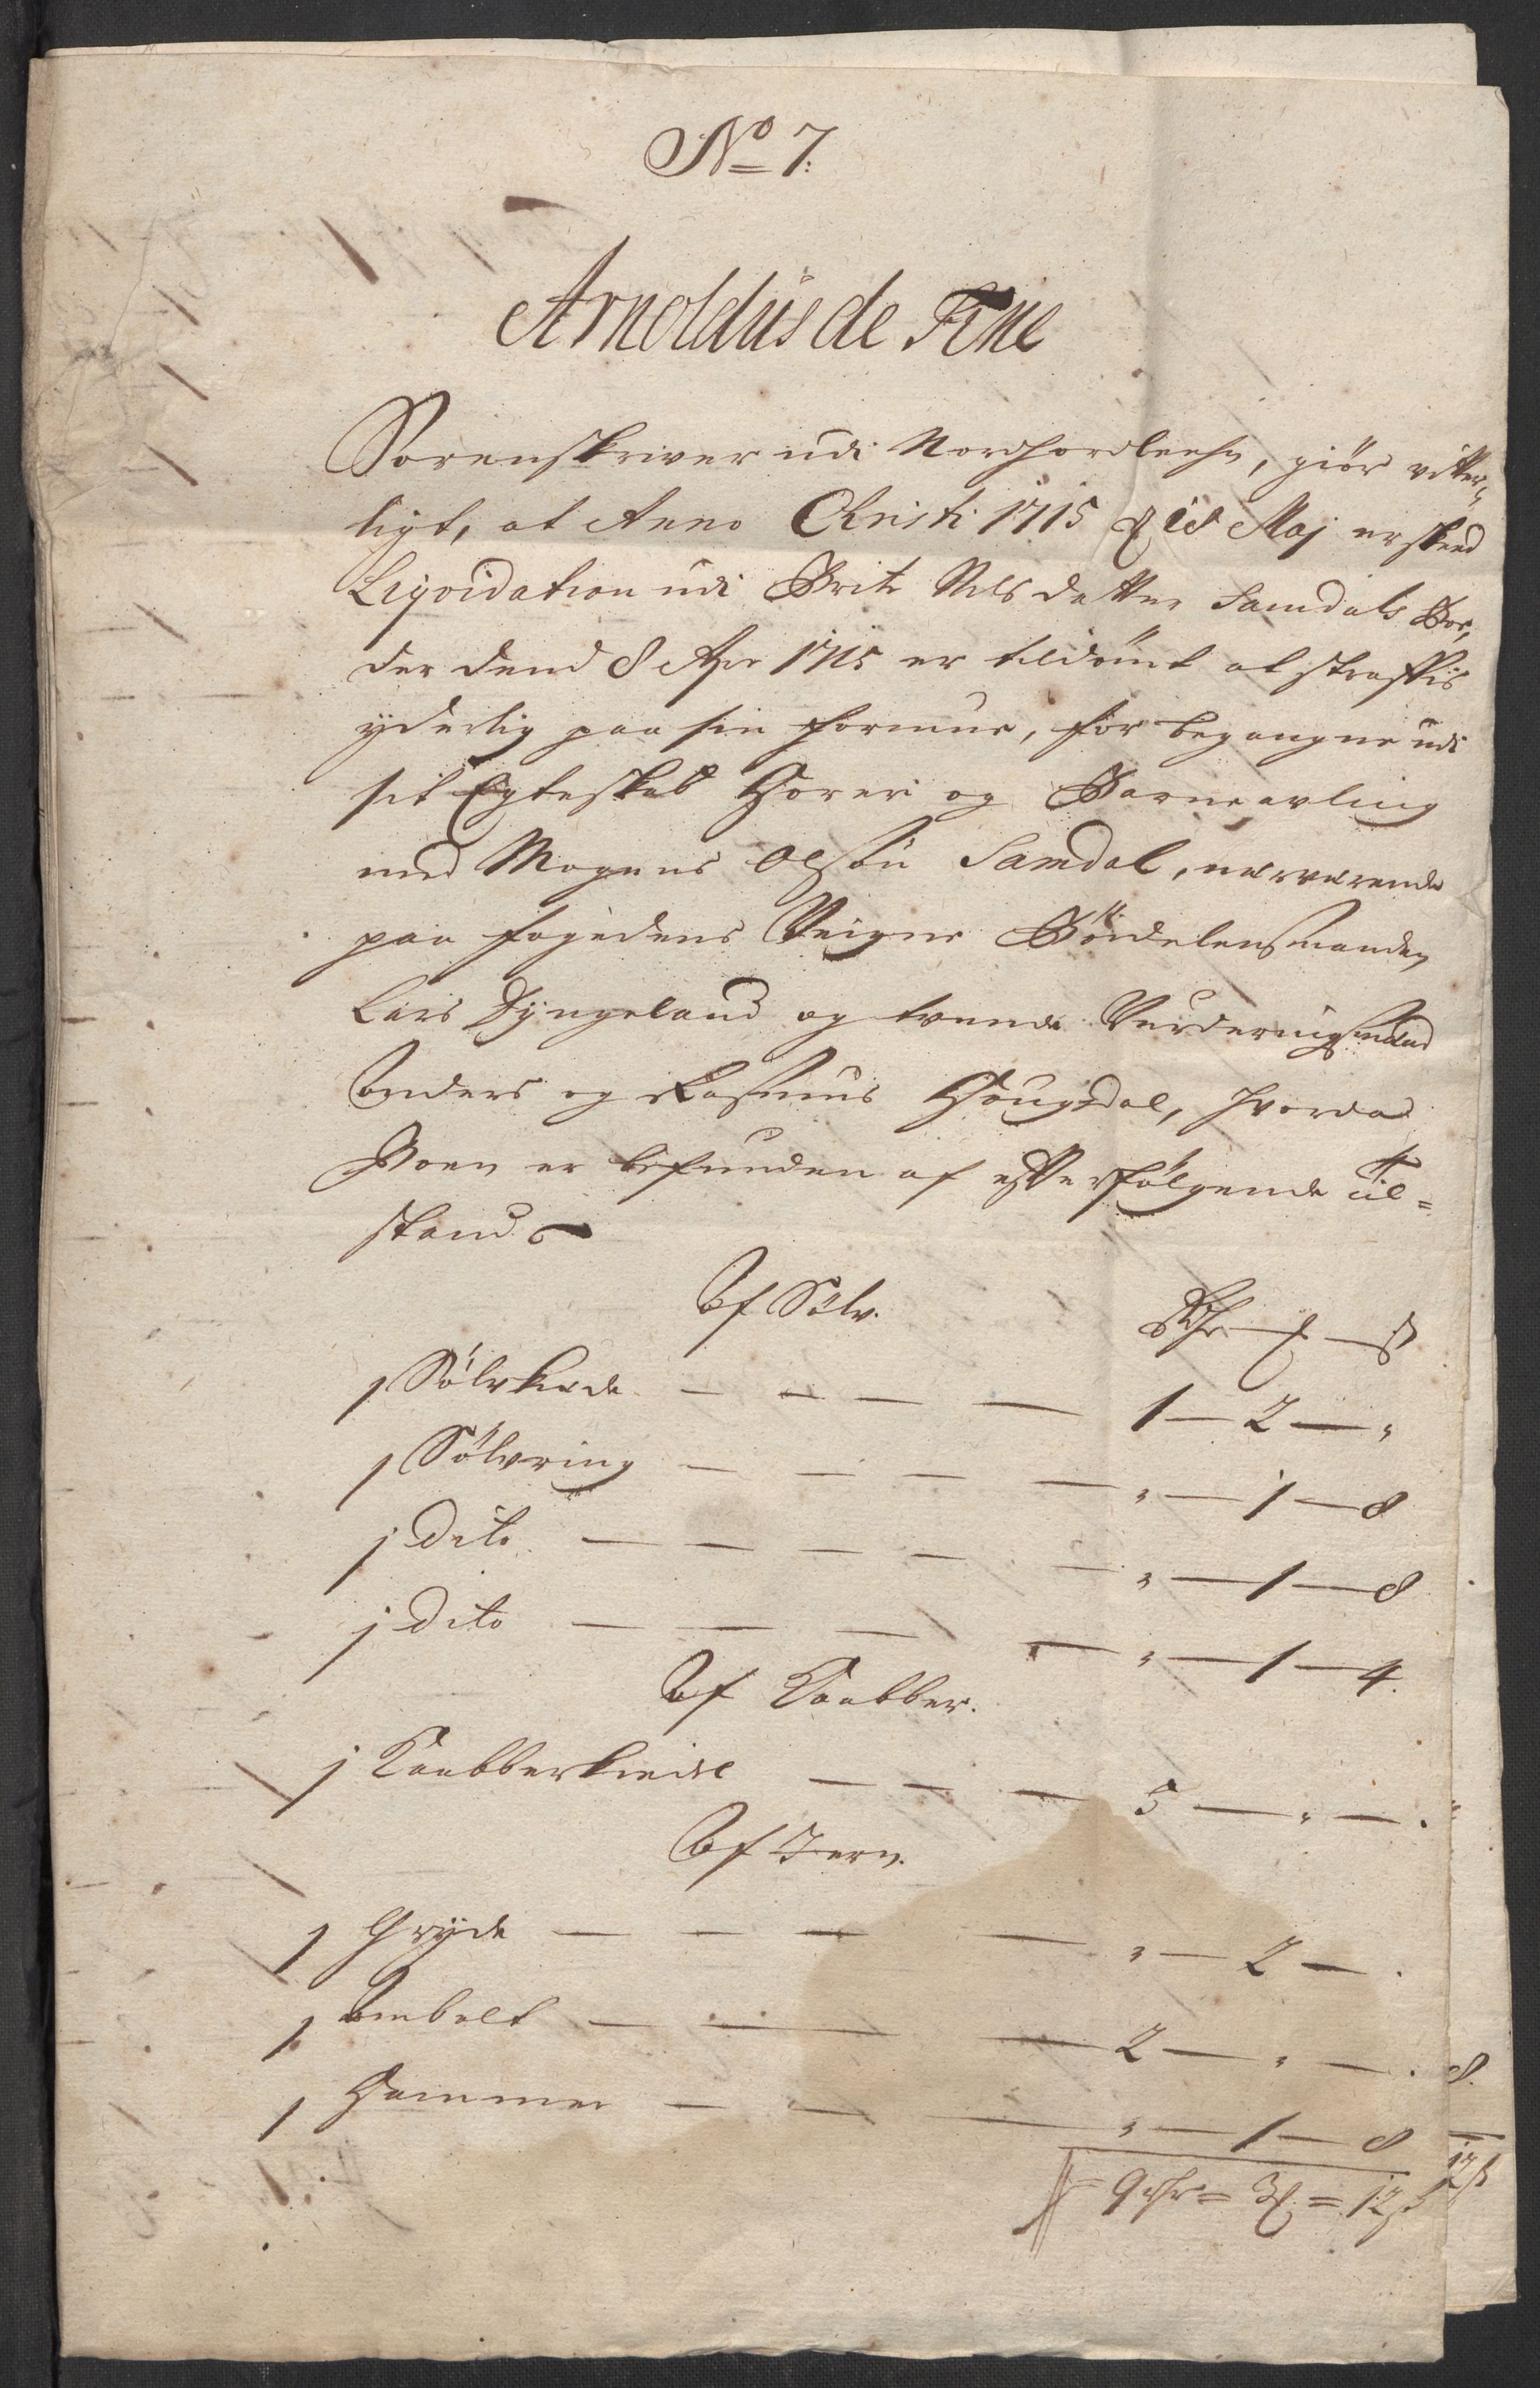 No 7.
Arnoldus de Fine
Sorenskriver udi Nordhordlehn, giör vitter,
ligt, at Anno Christi 1715 d 18 Maj er skeed
Liqvidation udi Brite Nels datter Samdals Boe,
der dend 8 Apr 1715 er tildömt at straffis
yderlig paa sin formue, for begangne udi
sit Egteskab Horeri og Barneavling
med Mogens Olsön Samdal, nærværende
paa fogedens Veigne Böidelensmanden
Lars Dyngeland og tvende Vurderingsmænd
Anders og Rasmus Hougdal, hvorda
Boen er befunden af efterfölgende Til=
stand
Af Sölv. Rdr — — ß
1 Sölvkiede — — — — 1 — 2 — „
1 Sölvring — — — — „ — 1 — 8
1 Dito — — — — — „ — 1 — 8
1 Dito — — — — „ — 1 — 4.
Af Kaabber.
1 Kaabberkiedel — — — 5 — „ — .
Af Jern.
1 Gryde — — — — „ — 2 — .
1 Ambolt — — — 2 — „ — .
1 Hammer — — — „ — 1 — 8
= 9 rdr = 3 = 12 ß
8.
12 ß